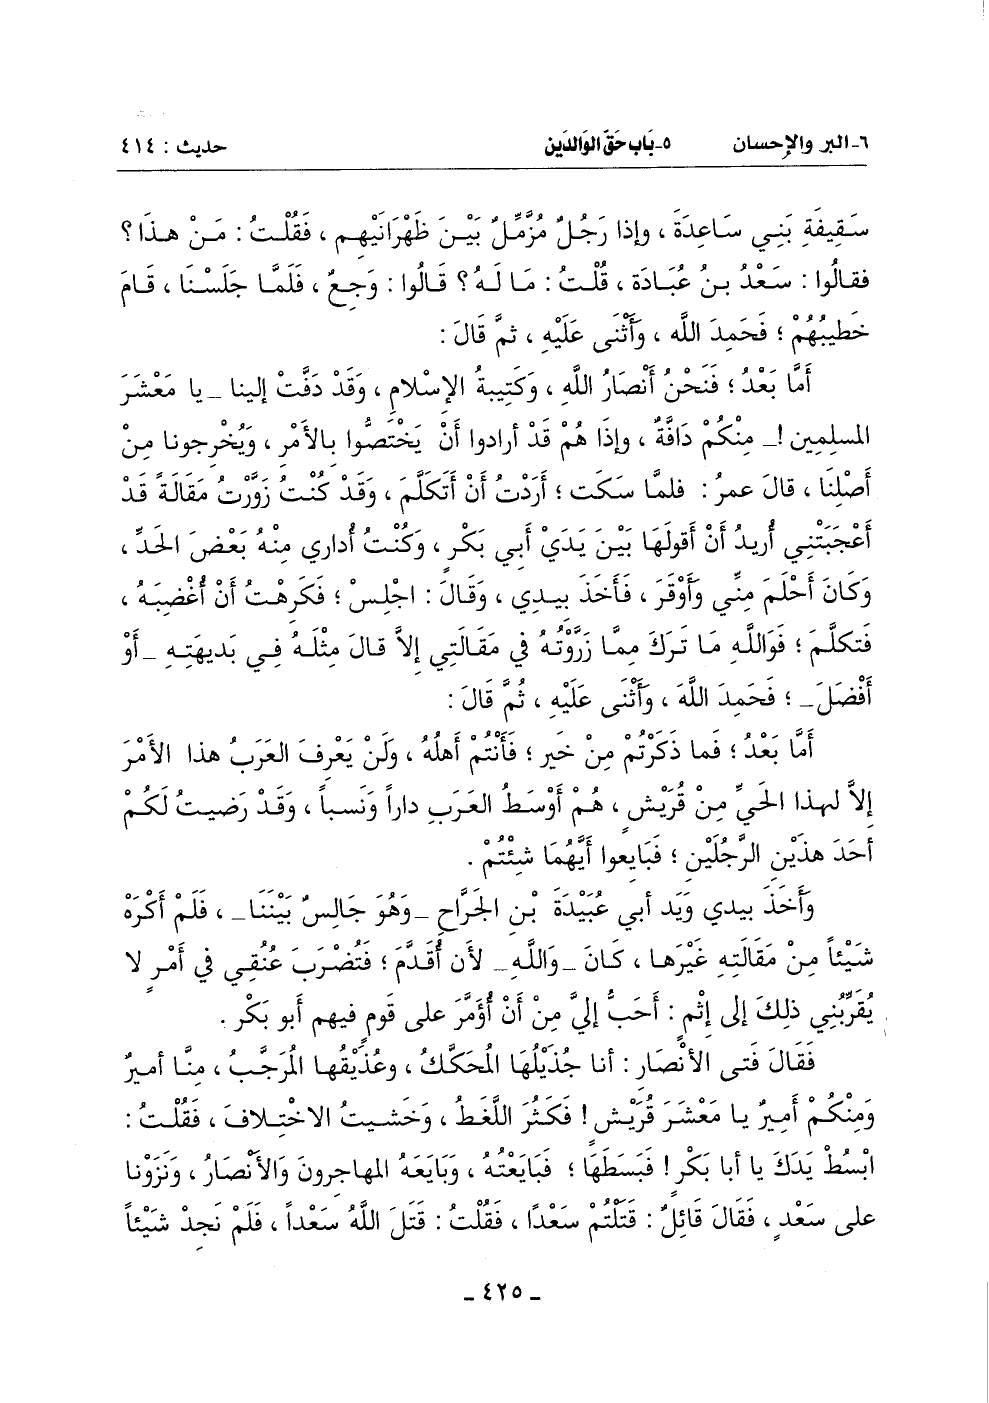 ٦ـ البر والإحسان ٥ـ بَاب حَقّ الوَالدَين حديث : ٤١٤
سَقِيفَةِ بَنِي سَاعِدَةَ ، وإذا رَجُلٌ مُزَّمِّلٌ بَيْنَ ظَهْرَانَيْهِم ، فَقُلْتُ : مَنْ هذَا ؟
فقالُوا : سَعْدُ بنُ عُبَادَة ، قُلْتُ : مَا لَهُ ؟ قَالُوا : وَجِعٌ ، فَلَمَّا جَلَسْنَا ، قَامَ
خَطيبُهُمْ ؛ فَحَمِدَ اللَّه ، وَأَثْنَى عَلَيْهِ ، ثمَّ قَالَ :
أَمَّا بَعْدُ ؛ فَنَحْنُ أَنْصَارُ اللَّهِ ، وَكَتِيبةُ الإسْلامِ ، وَقَدْ دَفَّتْ إلينا ـ يا مَعْشَرَ
المسلِمِين ! ـ مِنْكُمْ دَافَّةٌ ، وإذَا هُمْ قَدْ أرادوا أنْ يَخْتصُّوا بالأمْرِ ، وَيُخْرجونا مِنْ
أَصْلِنَا ، قالَ عمرُ : فلمَّا سَكَت ؛ أَرَدْتُ أنْ أَتكَلَّمَ ، وَقَدْ كُنْتُ زَوَّرْتُ مَقَالَةً قَدْ
أَعْجَبَتْنِي أُرِيدُ أَنْ أقولَهَا بَيْنَ يَدَيْ أبي بَكْرٍ ، وَكُنْتُ أُداري مِنْهُ بَعْضَ الحَدِّ ،
وَكَانَ أَحْلَمَ مِنِّي وَأَوْقَرَ ، فَأَخَذَ بيدِي ، وَقَالَ : اجْلِسْ ؛ فَكَرِهْتُ أنْ أُغْضِبَهُ ،
فَتكلَّمَ ؛ فَوَاللَّهِ مَا تَرَكَ مِمَّا زَوَّرْتُهُ فِي مَقَالَتِي إلاَّ قالَ مِثْلَهُ فِي بَدِيهَتِهِ ـ أَوْ
أَفْضَلَ ـ ؛ فَحَمِدَ اللَّهَ ، وَأَثْنَى عَلَيْهِ ، ثُمَّ قَالَ :
أَمَّا بَعْدُ ؛ فَما ذَكَرْتُمْ مِنْ خَيرٍ ؛ فَأَنْتُمْ أَهلُهُ ، وَلَنْ يَعْرِفَ العَرَبُ هذا الأَمْرَ
إلاَّ لهذا الحَيِّ مِنْ قُرَيْشٍ ، هُمْ أَوْسَطُ العَرَبِ داراً وَنَسباً ، وَقَدْ رَضِيتُ لَكُمْ
أحَدَ هذَيْنِ الرَّجُلَيْنِ ؛ فبَايعوا أَيَّهُمَا شِئْتُمْ .
وَأَخَذَ بيدي وَيَد أبي عُبَيْدَةَ بْنِ الجَرَّاحِ ـ وَهُوَ جَالِسٌ بَيْنَنَا ـ ، فَلَمْ أَكْرَهْ
شَيْئاً مِنْ مَقَالَتِهِ غَيْرَها ، كَانَ ـ وَاللَّهِ ـ لأَن أُقَدَّمَ ؛ فَتُضْرَبَ عُنُقِي فِي أَمْرٍ لا
يُقَرِّبُنِي ذلِكَ إلى إثْمٍ : أَحَبُّ إليَّ مِنْ أَنْ أُؤَمَّرَ على قومٍ فيهم أبو بَكْر .
فَقَالَ فَتى الأنْصَارِ : أنا جُذَيْلُهَا المُحَكَّكُ ، وعُذَيْقُها المُرَجَّبُ ، مِنَّا أميرٌ
وَمِنْكُمْ أَمِيرٌ يا مَعْشَرَ قُرَيْشٍ ! فَكَثُرَ اللَّغَطُ ، وَخَشيتُ الاخْتِلافَ ، فَقُلْتُ :
ابْسُطْ يَدَكَ يا أبا بَكْرٍ ! فَبَسَطَهَا ؛ فَبَايَعْتُهُ ، وَبَايَعَهُ المهاجرونَ وَالأَنْصَارُ ، وَنَزَوْنا
على سَعْدٍ ، فَقَالَ قَائِلٌ : قَتَلْتُمْ سَعْدًا ، فَقُلْتُ : قَتَلَ اللَّهُ سَعْداً ، فَلَمْ نَجِدْ شَيْئاً
ـ ٤٢٥ ـ